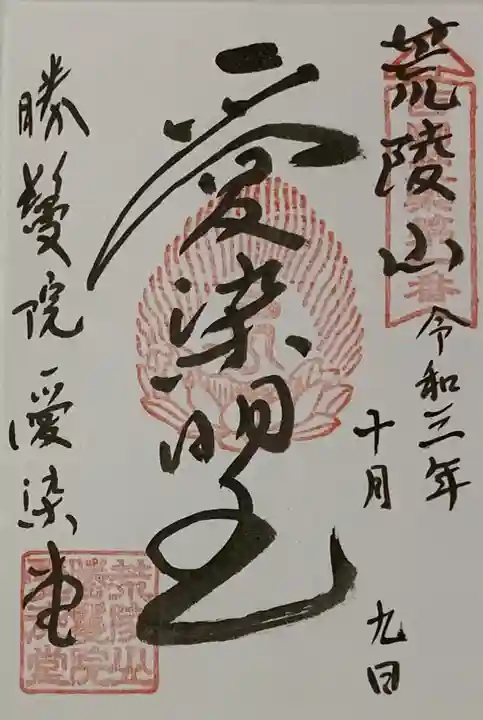 荒陵山
令和三年
十月 九日
愛染明王
勝鬘院愛染堂
荒陵山勝鬘院愛染堂